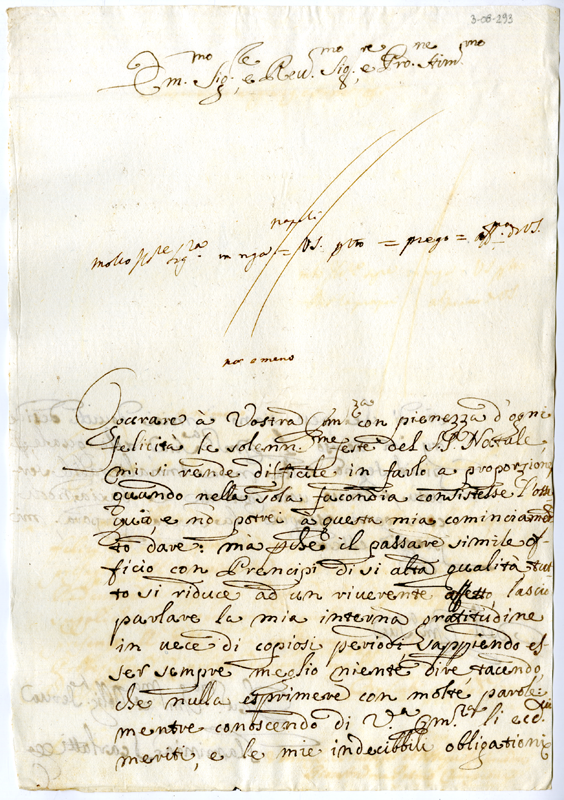 3-08-293
Em.mo Sig.re e Rev.mo Sig.re e Pro.ne Stim.mo
napoli
molto Ill.re Sig.ra in nga = VS. pto = prego = aff.ma di VS.
piu o meno
Sperare à Vostra Em.za con pienezza d'ogni
felicità le solenn.me feste del S.S. Natale
mi si rende difficile in farlo a proporzione
quando nella sola facondia consistesse l'osse
quio, e nō potrei à questa mia cominciamen
to dare: ma perche il passare simile of
ficio con Prencipi di sì alta qualità tut
to si riduce ad un riverente affetto, lascio
parlare la mia interna gratitudine
in vece di copiosi periodi sappiendo es
ser sempre meglio niente dire tacendo,
che nulla esprimere con molte parole:
mentre conoscendo di V.a Em.za li ecc.mi
meriti, e le mie indecibbili obligationi